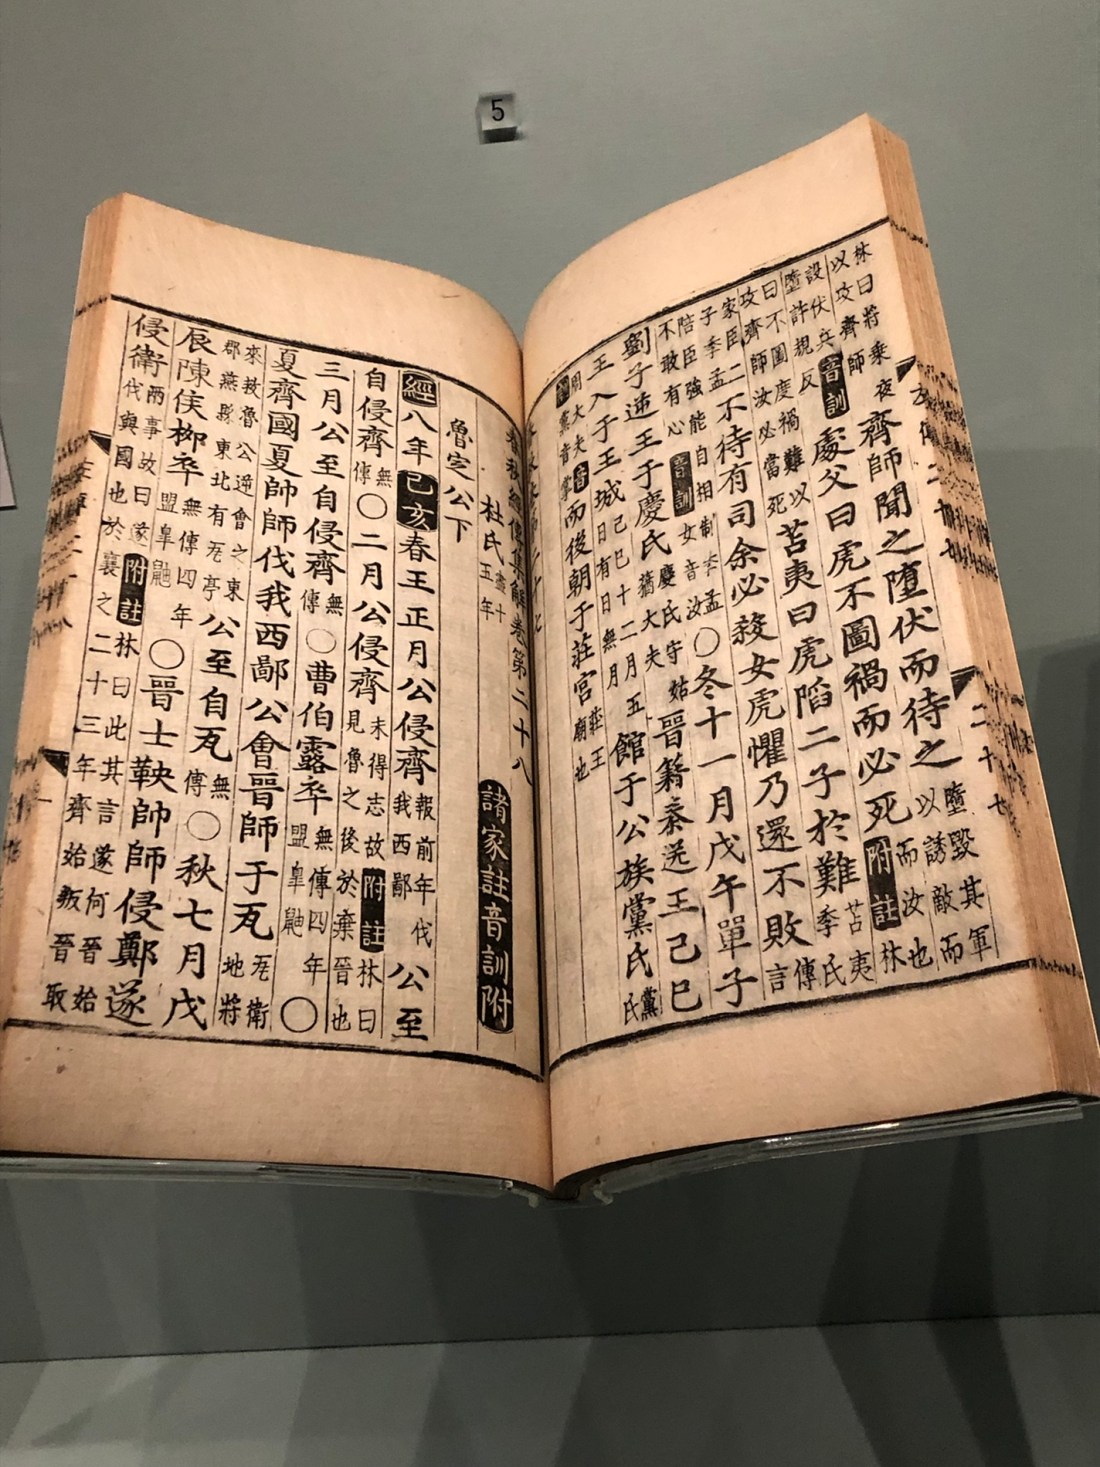 林曰將乘夜
以攻齊師
齊師聞之墮伏而待之
墮毀其軍而
以誘敵而
設伏兵
音訓
墮許規反
處父曰虎不圖禍而必死
而汝也
附註
林
曰不圖度禍難以
攻齊師汝必當死
苫夷曰虎陷二子於難
苫夷
季氏
家臣二
子季孟
不待有司余必殺女虎懼乃還不敗
傳
言
陪臣強能自相制季孟
不敢有心
音訓
女音汝
○冬十一月戊午單子
劉子逆王于慶氏
慶氏守姑
蕕大夫
晉籍秦送王己巳
王入于王城
己巳十二月五
日有日無月
館于公族黨氏
黨
氏
周大夫
黨音掌
而後朝于莊宮
莊王
廟也
春秋經傳集解卷第二十八
諸家註音訓附
杜氏
盡十
五年
魯定公下
經八年
己亥
春王正月公侵齊
報前年伐
我西鄙
公至
自侵齊
無
傳
○二月公侵齊
未得志故
見魯之後於棄晉也
附註
林曰
三月公至自侵齊
無
傳
○曹伯露卒
無傳四年
盟皐鼬
○
夏齊國夏帥師伐我西鄙公會晉師于瓦
瓦衛
地將
來救魯公逆會之東
郡燕縣東北有瓦亭
公至自瓦
無
傳
○秋七月戊
辰陳侯柳卒
無傳四年
盟皐鼬
○晉士鞅帥師侵鄭遂
侵衛
兩事故曰遂
附註
林曰此其言遂何晉始
伐與國也於襄之二十三年齊始叛晉取